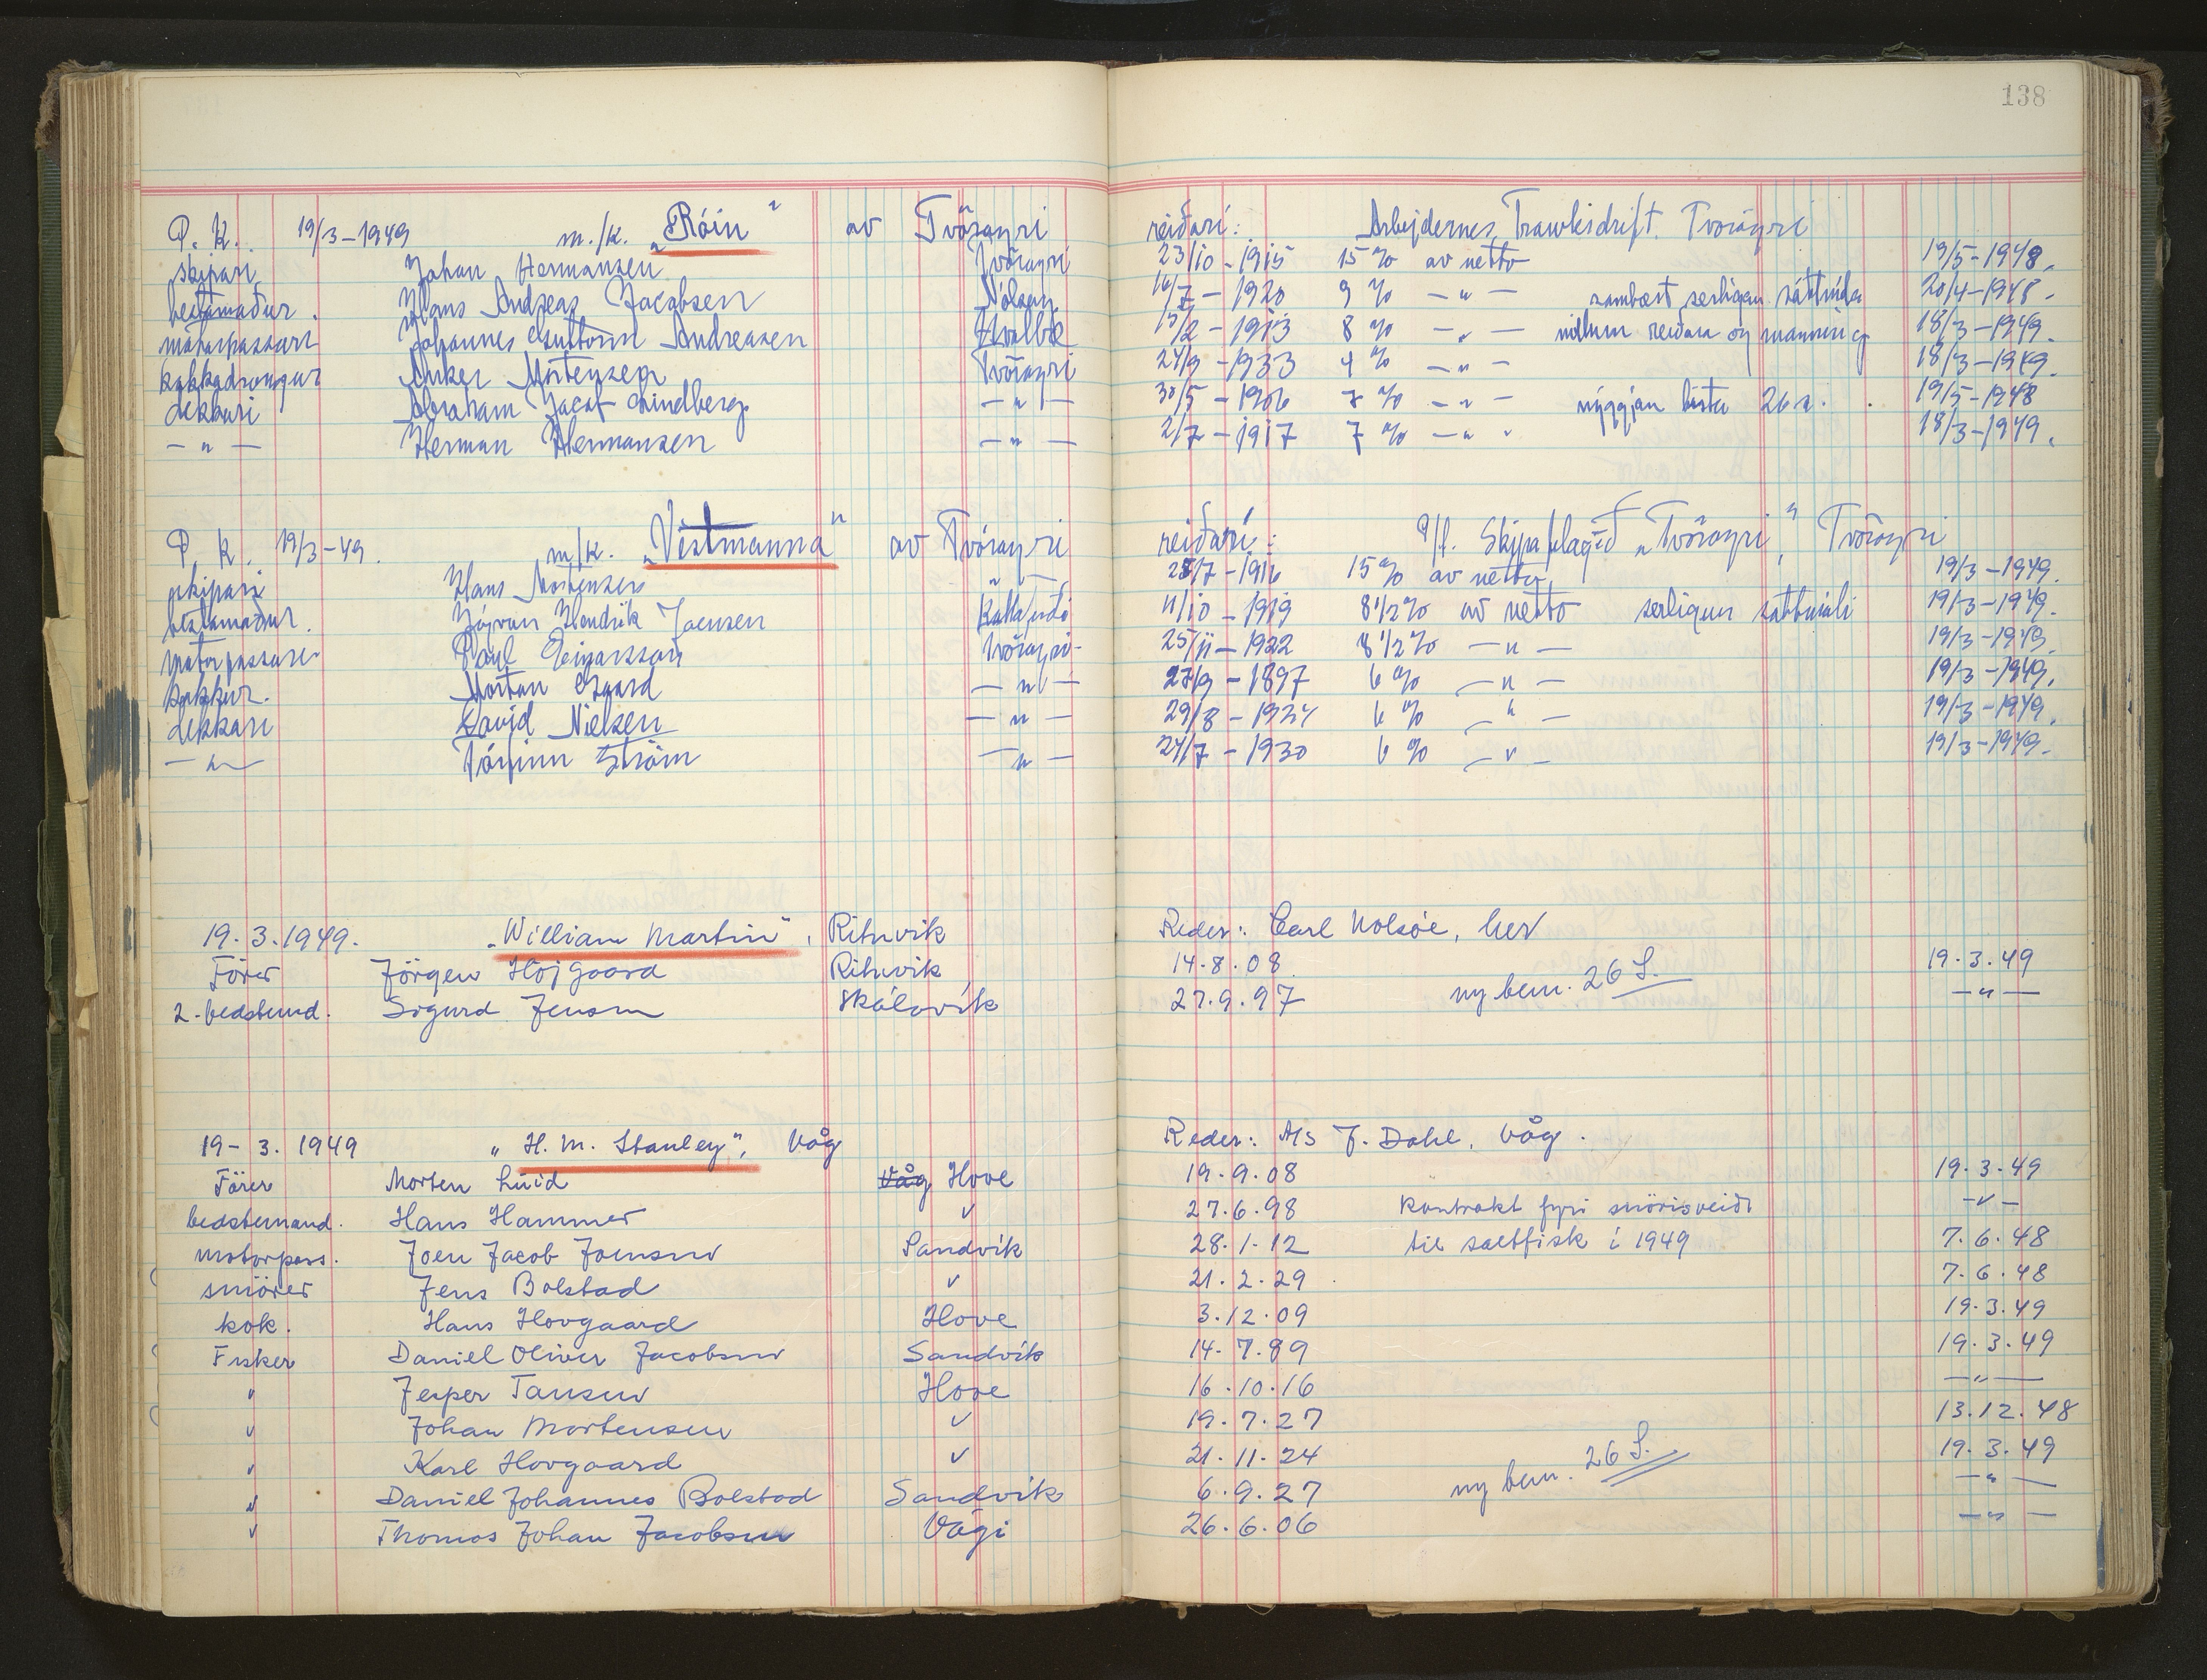 138
P. K. 19/3-1949 m./k. „Róin" av Tvörayri reiðari: Arbejdernes Trawlsdrift. Tvörayri
skipari Johan Hermansen Tvörayri 23/10-1915 15 % av netto 19/5-1948.
bestamaður. Hans Andreas Jacobsen Nólsoy 16/7-1920 9 % -"- sambært serligan sáttmála 20/4-1948.
motorpassari Johannes Guttorm Andreasen Hvalbö 15/2-1913 8 % -"- millum reiðara og manning 18/3-1949.
kokkadrongur Anker Mortensen Tvörayri 24/9-1933 4 % -"- 18/3-1949.
dekkari Abraham Jacob Lindberg -"- 30/5-1906 7 % -"- nýggjan lista 26 a. 19/5-1948
-"- Herman Hermansen -"- 2/7-1917 7 % -"- 18/3-1949.
P. K. 19/3-49. m/k. „Vestmanna" av Tvörayri reiðari: P/f. Skipafelagið „Tvörayri", Tvörayri
skipari Hans Mortensen 15 % av netto 19/3-1949.
bestamaður. Jógvan Hendrik Joensen 11/10-1919 8 1/2 % av netto serligur sáttmáli 19/3-1949.
motorpassari Poul Einarsson Tvörayri 25/11-1922 8 1/2 % -"- 19/3-1949.
kokkur. Morten Gaard -"- 27/9-1897 6 % -"- 19/3-1949.
dekkari David Nielsen -"- 29/8-1924 6 % -"- 19/3-1949.
-"- Tórfinn Ström -"- 24/7-1930 6 % -"- 19/3-1949.
19. 3. 1949. „William Martin", Rituvik Reder: Carl Nolsöe, her
Förer Jörgen Höjgaard Rituvik 14.8.08 19.3.49
2. bedstemd. Sigurd Jensen Skálavík 27.9.97 ny bem. 26 S. -"-
19-3. 1949 „H. M. Stanley", Våg Reder: A/S J. Dahl, Våg.
Förer Morten Luid Våg Hove 19.9.08 19.3.49
bedstemand. Hans Hammer " 27.6.98 Kontrakt fyri snörisveiði -"-
motorpass. Joen Jacob Joensen Sandvik 28.1.12 til saltfisk í 1949 7.6.48
smörer Jens Bolstad " 21.2.29 7.6.48
kok. Hans Hovgaard Hove 3.12.09 19.3.49
Fisker Daniel Oliver Jacobsen Sandvik 14.7.89 19.3.49
" Jesper Tausen Hove 16.10.16 -"-
" Johan Mortensen " 19.7.27 13.12.48
" Karl Hovgaard " 21.11.24 19.3.49
" Daniel Johannes Bolstad Sandvik 6.9.27 ny bem. 26 S. -"-
" Thomas Johan Jacobsen Vági 26.6.06 -"-